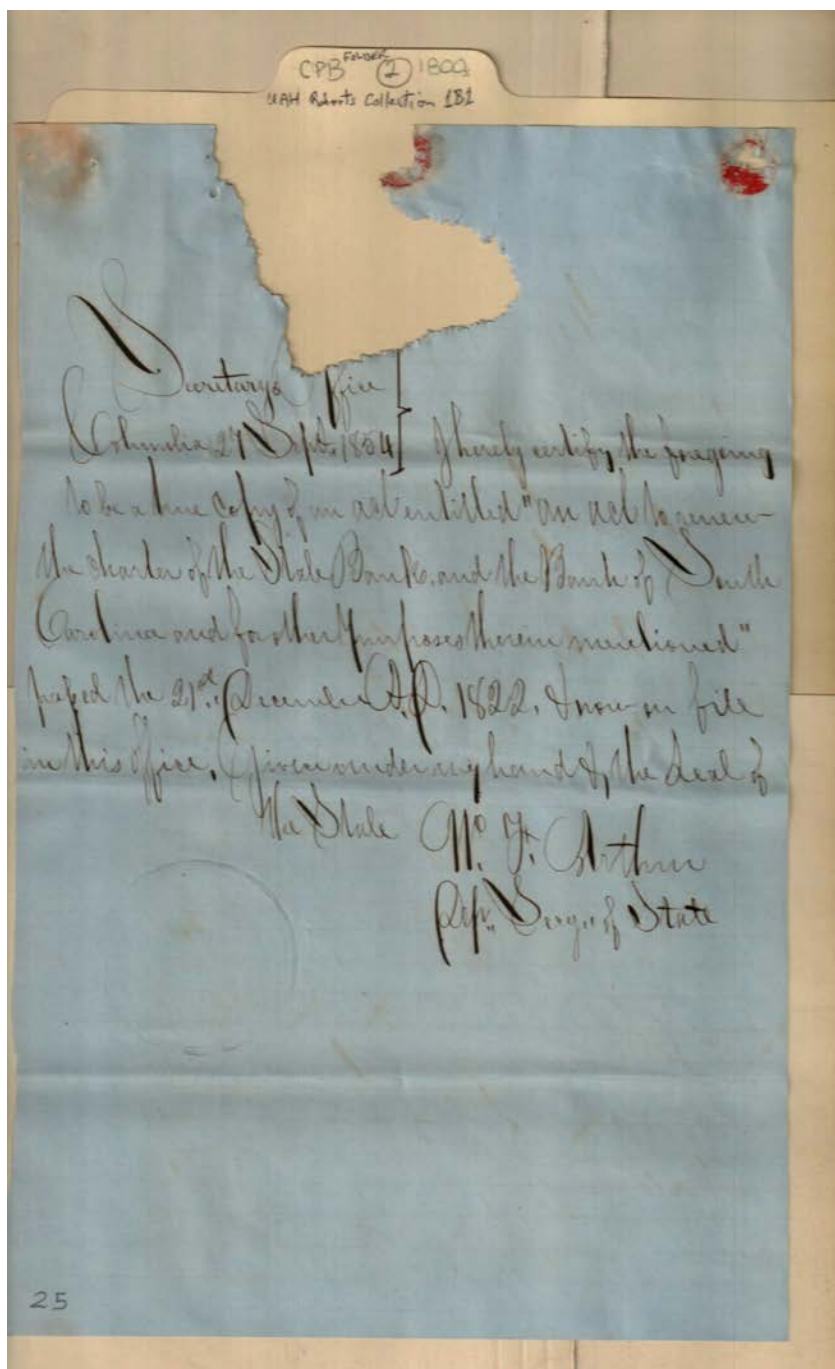 CPB FOLDER 2 1800s
UAH Roberts Collection 1B1
Secretary's Office
Columbia 27 Sept. 1854 I hereby certify the foregoing
to be a true copy of an act entitled "an act to renew
the charter of the State Bank, and the Bank of South
Carolina and for other purposes therein mentioned"
passed the 21st. December A.D. 1822. & now on file
in this office. Given under my hand & the Seal of
the State
Arthur
Dep. Secy. of State
25